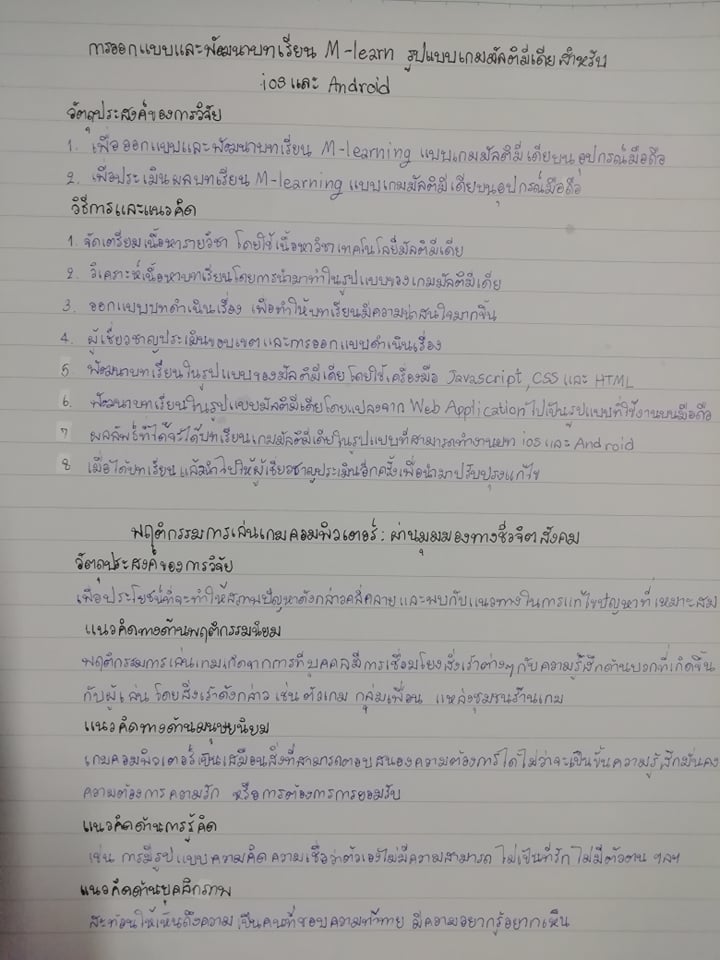 การออกแบบและพัฒนาบทเรียน M-learn รูปแบบเกมมัลติมีเดียสำหรับ
ios และ Android
วัตถุประสงค์ของการวิจัย
1. เพื่อออกแบบและพัฒนาบทเรียน M-learning แบบเกมมัลติมีเดียบนอุปกรณ์มือถือ
2. เพื่อประเมินผลบทเรียน M-learning แบบเกมมัลติมีเดียบนอุปกรณ์มือถือ
วิธีการและแนวคิด
1. จัดเตรียมเนื้อหารายวิชา โดยใช้เนื้อหาวิชาเทคโนโลยีมัลติมีเดีย
2. วิเคราะห์เนื้อหาบทเรียนโดยการนำมาทำในรูปแบบของเกมมัลติมีเดีย
3. ออกแบบบทดำเนินเรื่อง เพื่อทำให้บทเรียนมีความน่าสนใจมากขึ้น
4. ผู้เชี่ยวชาญประเมินขอบเขตและการออกแบบดำเนินเรื่อง
5 พัฒนาบทเรียนในรูปแบบของมัลติมีเดียโดยใช้เครื่องมือ Javascript, CSS และ HTML
6. พัฒนาบทเรียนในรูปแบบมัลติมีเดียโดยแปลงจาก Web Application ไปเป็นรูปแบบที่ใช้งานบนมือถือ
7 ผลลัพธ์ที่ได้จะได้บทเรียนเกมมัลติมีเดียในรูปแบบที่สามารถทำงานบน ios และ Android
8 เมื่อได้บทเรียนแล้วนำไปให้ผู้เชี่ยวชาญประเมินอีกครั้งเพื่อนำมาปรับปรุงแก้ไข
พฤติกรรมการเล่นเกมคอมพิวเตอร์: ผ่านมุมมองทางชีวจิตสังคม
วัตถุประสงค์ของการวิจัย
เพื่อประโยชน์ที่จะทำให้สภาพปัญหาดังกล่าวคลี่คลาย และพบกับแนวทางในการแก้ไขปัญหาที่เหมาะสม
แนวคิดทางด้านพฤติกรรมนิยม
พฤติกรรมการเล่นเกมเกิดจากการที่บุคคลมีการเชื่อมโยงสิ่งเร้าต่างๆกับความรู้สึกด้านบวกที่เกิดขึ้น
กับผู้เล่น โดยสิ่งเร้าดังกล่าว เช่น ตัวเกม กลุ่มเพื่อน แหล่งชุมชนร้านเกม
แนวคิดทางด้านมนุษยนิยม
เกมคอมพิวเตอร์เป็นเสมือนสิ่งที่สามารถตอบสนองความต้องการได้ไม่ว่าจะเป็นขั้นความรู้สึกมั่นคง
ความต้องการความรัก หรือการต้องการการยอมรับ
แนวคิดด้านการรู้คิด
เช่น การมีรูปแบบความคิด ความเชื่อว่าตัวเองไม่มีความสามารถ ไม่เป็นที่รัก ไม่มีตัวตน ฯลฯ
แนวคิดด้านบุคลิกภาพ
สะท้อนให้เห็นถึงความเป็นคนที่ชอบความท้าทาย มีความอยากรู้อยากเห็น